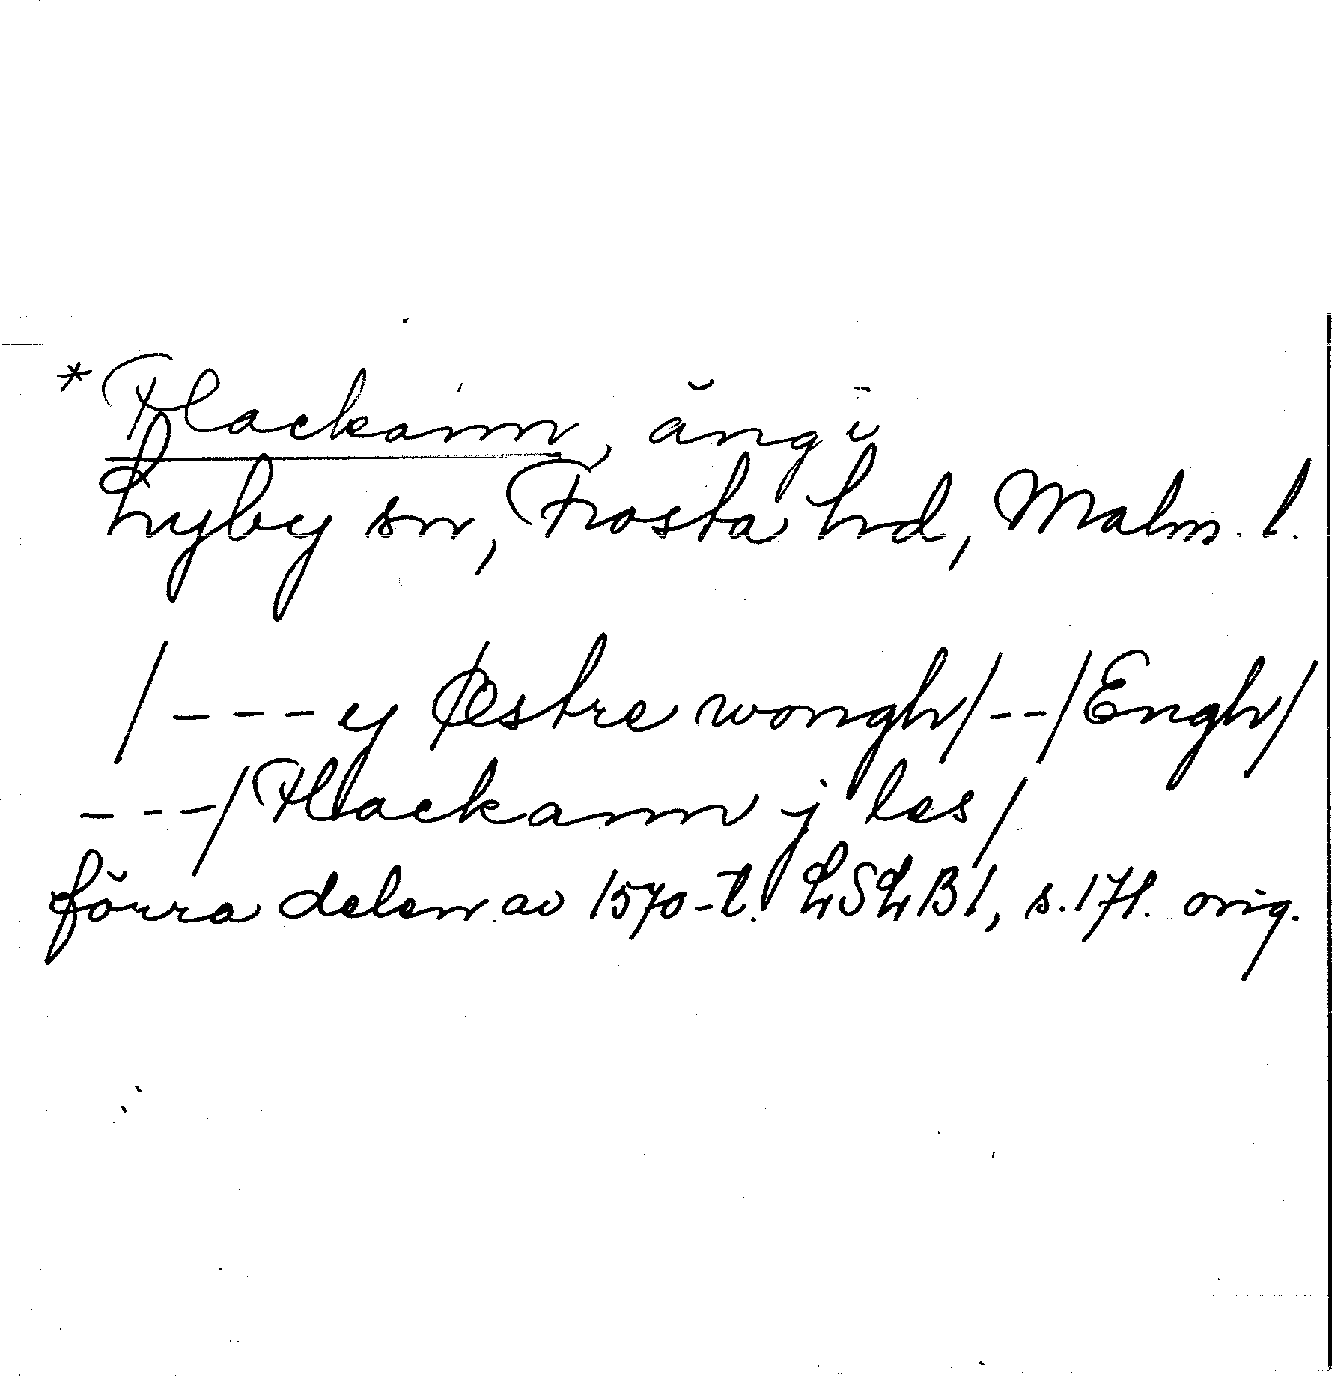 *Flackann, äng i
Lyby sn, Frosta hd, Malm. l.
/---y Østre wongh/--/Engh/
---/Flackann j les/
förra delen av 1570-t. LSLB1, s. 171. orig.